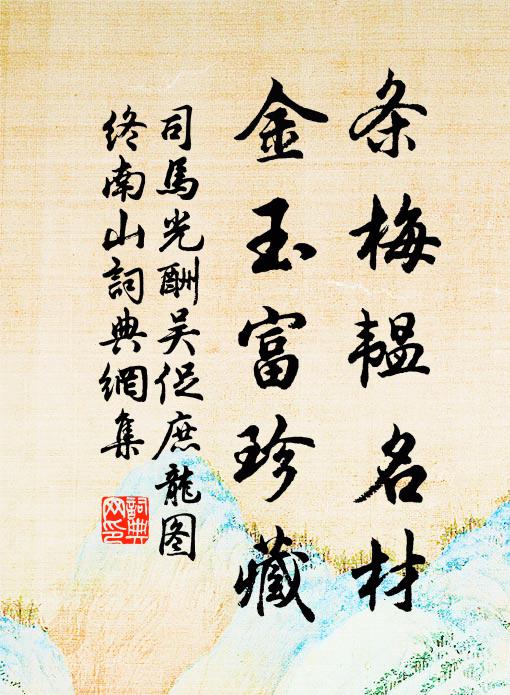 条梅韫名材
金玉富珍藏
司馬光酬吴促庶龍图
終南山詞典網集
詞典网印